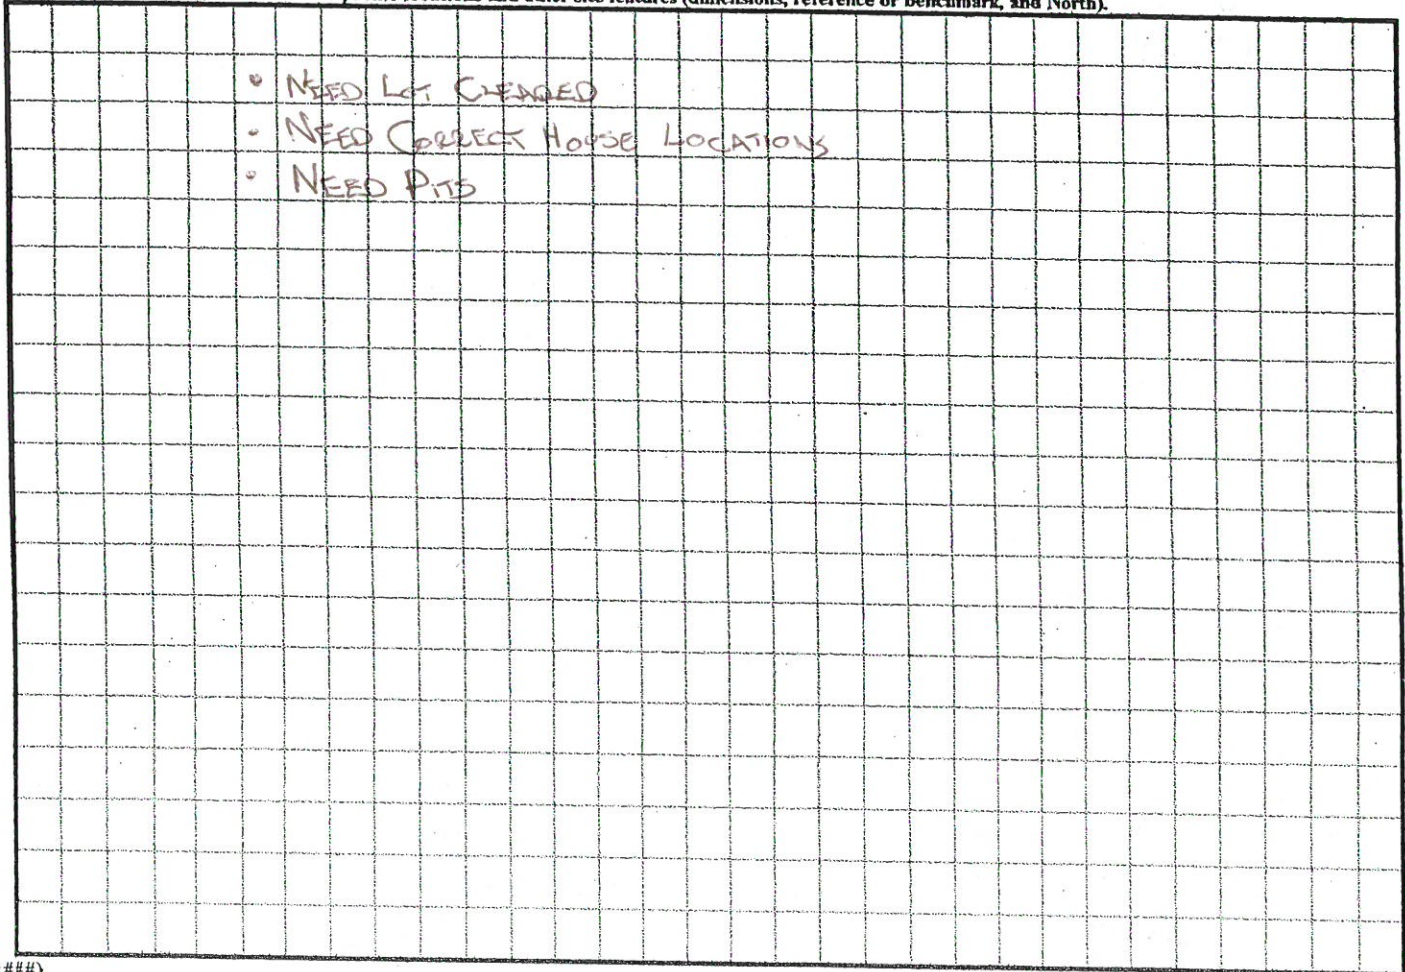 locations and other site features (dimensions, reference or benchmark, and North).
• NEED LOT CLEARED
• NEED CORRECT HOUSE LOCATIONS
• NEED PITS
###)